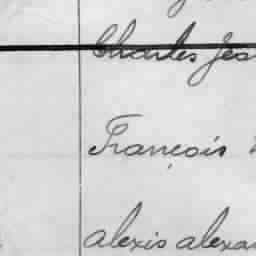 Charles Jea
François
alexis alexan